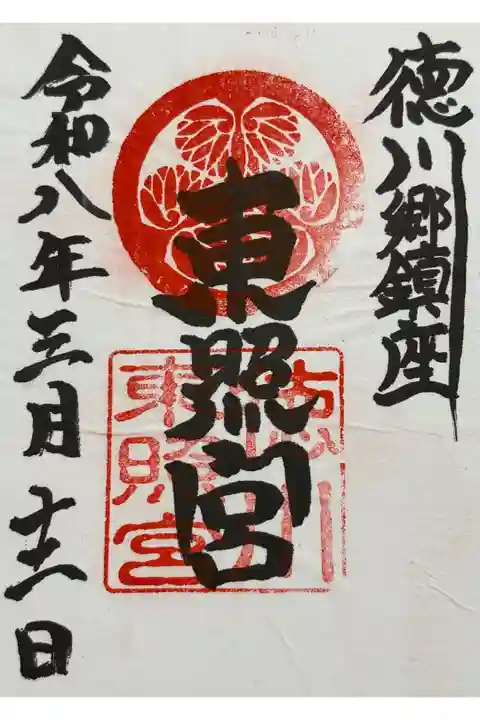 徳川郷鎮座
東照宮
徳川
東照宮
令和八年三月十六日